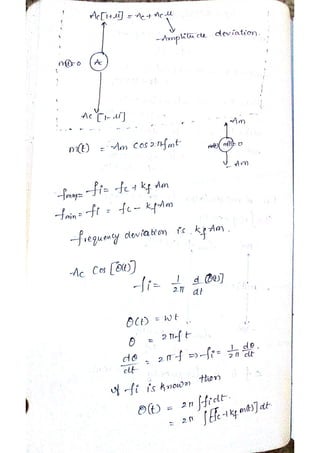 Ac[1+μ] = Ac + Ac μ
→ Amplitude deviation.
m(t)=0 Ac
Ac [1-μ]
Am
m(t) = Am cos2πfmt
m(t)=0
-Am
fmax = fi = fc + kf Am
fmin = fi = fc - kf Am
frequency deviation is kf Am.
Ac Cos [θ(t)]
fi = 1/2π d/dt [θ(t)]
θ(t) = wt
θ = 2πf t
dθ/dt = 2πf ⇒ fi = 1/2π dθ/dt
If fi is known then
θ(t) = 2π ∫fi dt.
= 2π ∫[fc + kf m(t)] dt.